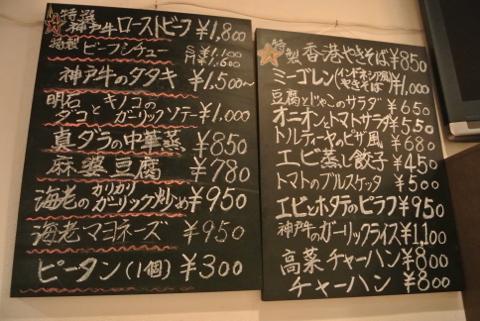 特選
神戸牛ローストビーフ ¥1,800
特製 ビーフシチュー S ¥1,100
M ¥1,600
神戸牛のタタキ ¥1,500〜
明石ダコとキノコのガーリックソテー ¥1,000
真ダラの中華蒸 ¥850
麻婆豆腐 ¥780
海老のカリカリガーリック炒め ¥950
海老マヨネーズ ¥950
ピータン(1個) ¥300
特製 香港やきそば ¥850
ミーゴレン(インドネシア風やきそば) ¥1,000
豆腐とじゃこのサラダ ¥650
オニオンとトマトサラダ ¥550
トルティーヤのピザ風 ¥680
エビ蒸し餃子 ¥450
トマトのブルスケッタ ¥500
エビとホタテのピラフ ¥950
神戸牛のガーリックライス ¥1,100
高菜チャーハン ¥800
チャーハン ¥800